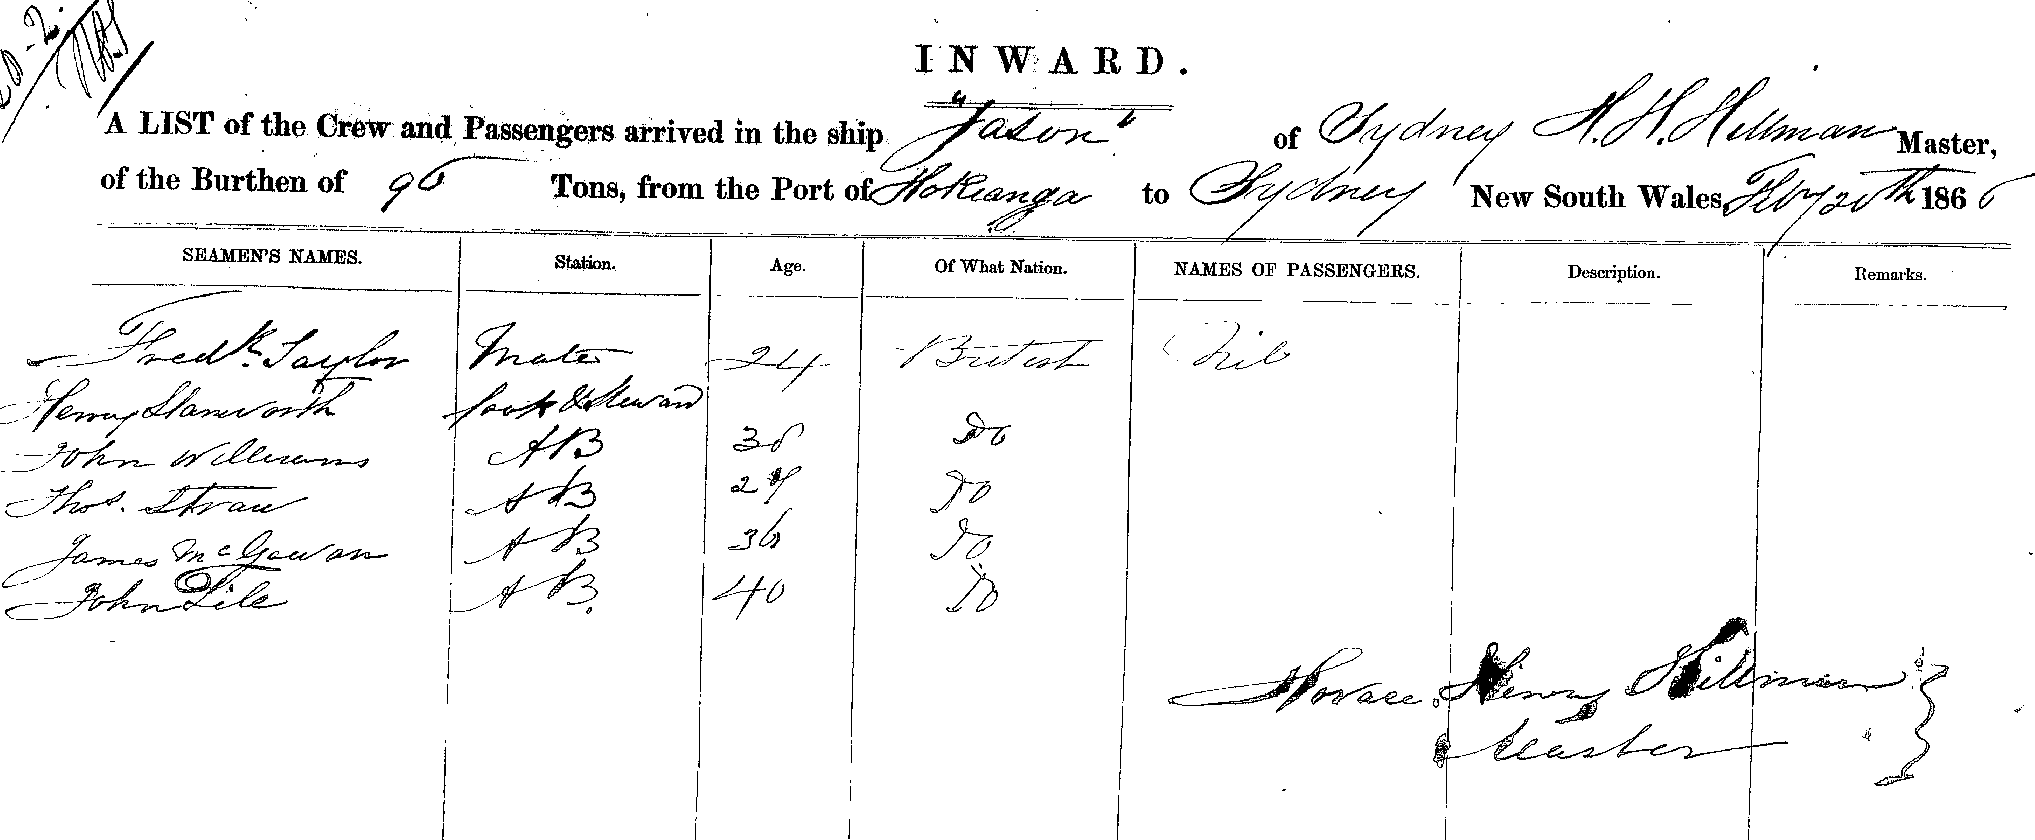 20-2
INWARD.
A LIST of the Crew and Passengers arrived in the ship "Jason" of Sydney H. H. Hillman Master,
of the Burthen of 96 Tons, from the Port of Hokianga to Sydney New South Wales, Feby 20th 1866
SEAMEN'S NAMES. Station. Age. Of What Nation. NAMES OF PASSENGERS. Description. Remarks.
Fredk. Taylor Mate 24 British Nil
Henry Stanworth Cook & Steward
John Williams AB 38 Do
Thos. Straw AB Do
James McGowan AB 36 Do
John AB. 40 Do
Horace Henry Hillman
Master